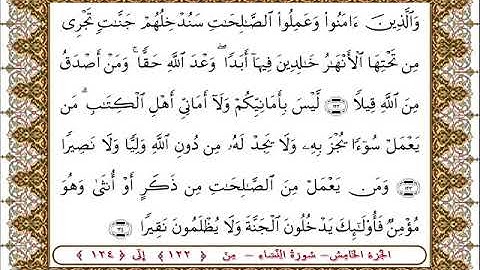 وَٱلَّذِينَ ءَامَنُوا۟ وَعَمِلُوا۟ ٱلصَّـٰلِحَـٰتِ سَنُدْخِلُهُمْ جَنَّـٰتٍ تَجْرِى
مِن تَحْتِهَا ٱلْأَنْهَـٰرُ خَـٰلِدِينَ فِيهَآ أَبَدًا ۖ وَعْدَ ٱللَّهِ حَقًّا ۚ وَمَنْ أَصْدَقُ
مِنَ ٱللَّهِ قِيلًا ﴿١٢٢﴾ لَّيْسَ بِأَمَانِيِّكُمْ وَلَآ أَمَانِىِّ أَهْلِ ٱلْكِتَـٰبِ ۗ مَن
يَعْمَلْ سُوٓءًا يُجْزَ بِهِۦ وَلَا يَجِدْ لَهُۥ مِن دُونِ ٱللَّهِ وَلِيًّا وَلَا نَصِيرًا
﴿١٢٣﴾ وَمَن يَعْمَلْ مِنَ ٱلصَّـٰلِحَـٰتِ مِن ذَكَرٍ أَوْ أُنثَىٰ وَهُوَ
مُؤْمِنٌ فَأُو۟لَـٰٓئِكَ يَدْخُلُونَ ٱلْجَنَّةَ وَلَا يُظْلَمُونَ نَقِيرًا ﴿١٢٤﴾
الجزء الخامس - سورة النساء - من ﴿١٢٢﴾ إلى ﴿١٢٤﴾